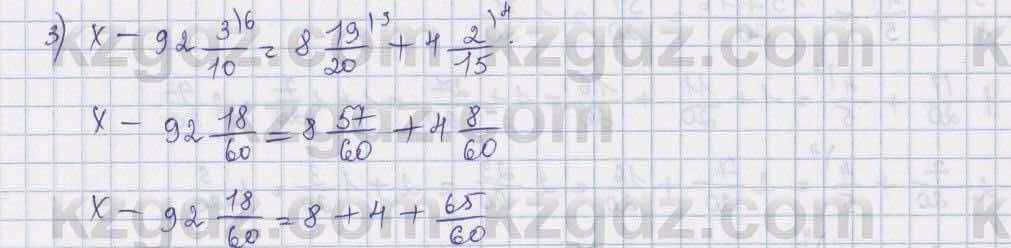 3) x - 92 3/10 )6 = 8 19/20 )3 + 4 2/15 )4.
x - 92 18/60 = 8 57/60 + 4 8/60
x - 92 18/60 = 8 + 4 + 65/60
kzgdz.com kzgdz.com
kzgdz.com
kzgdz.com kzgdz.com